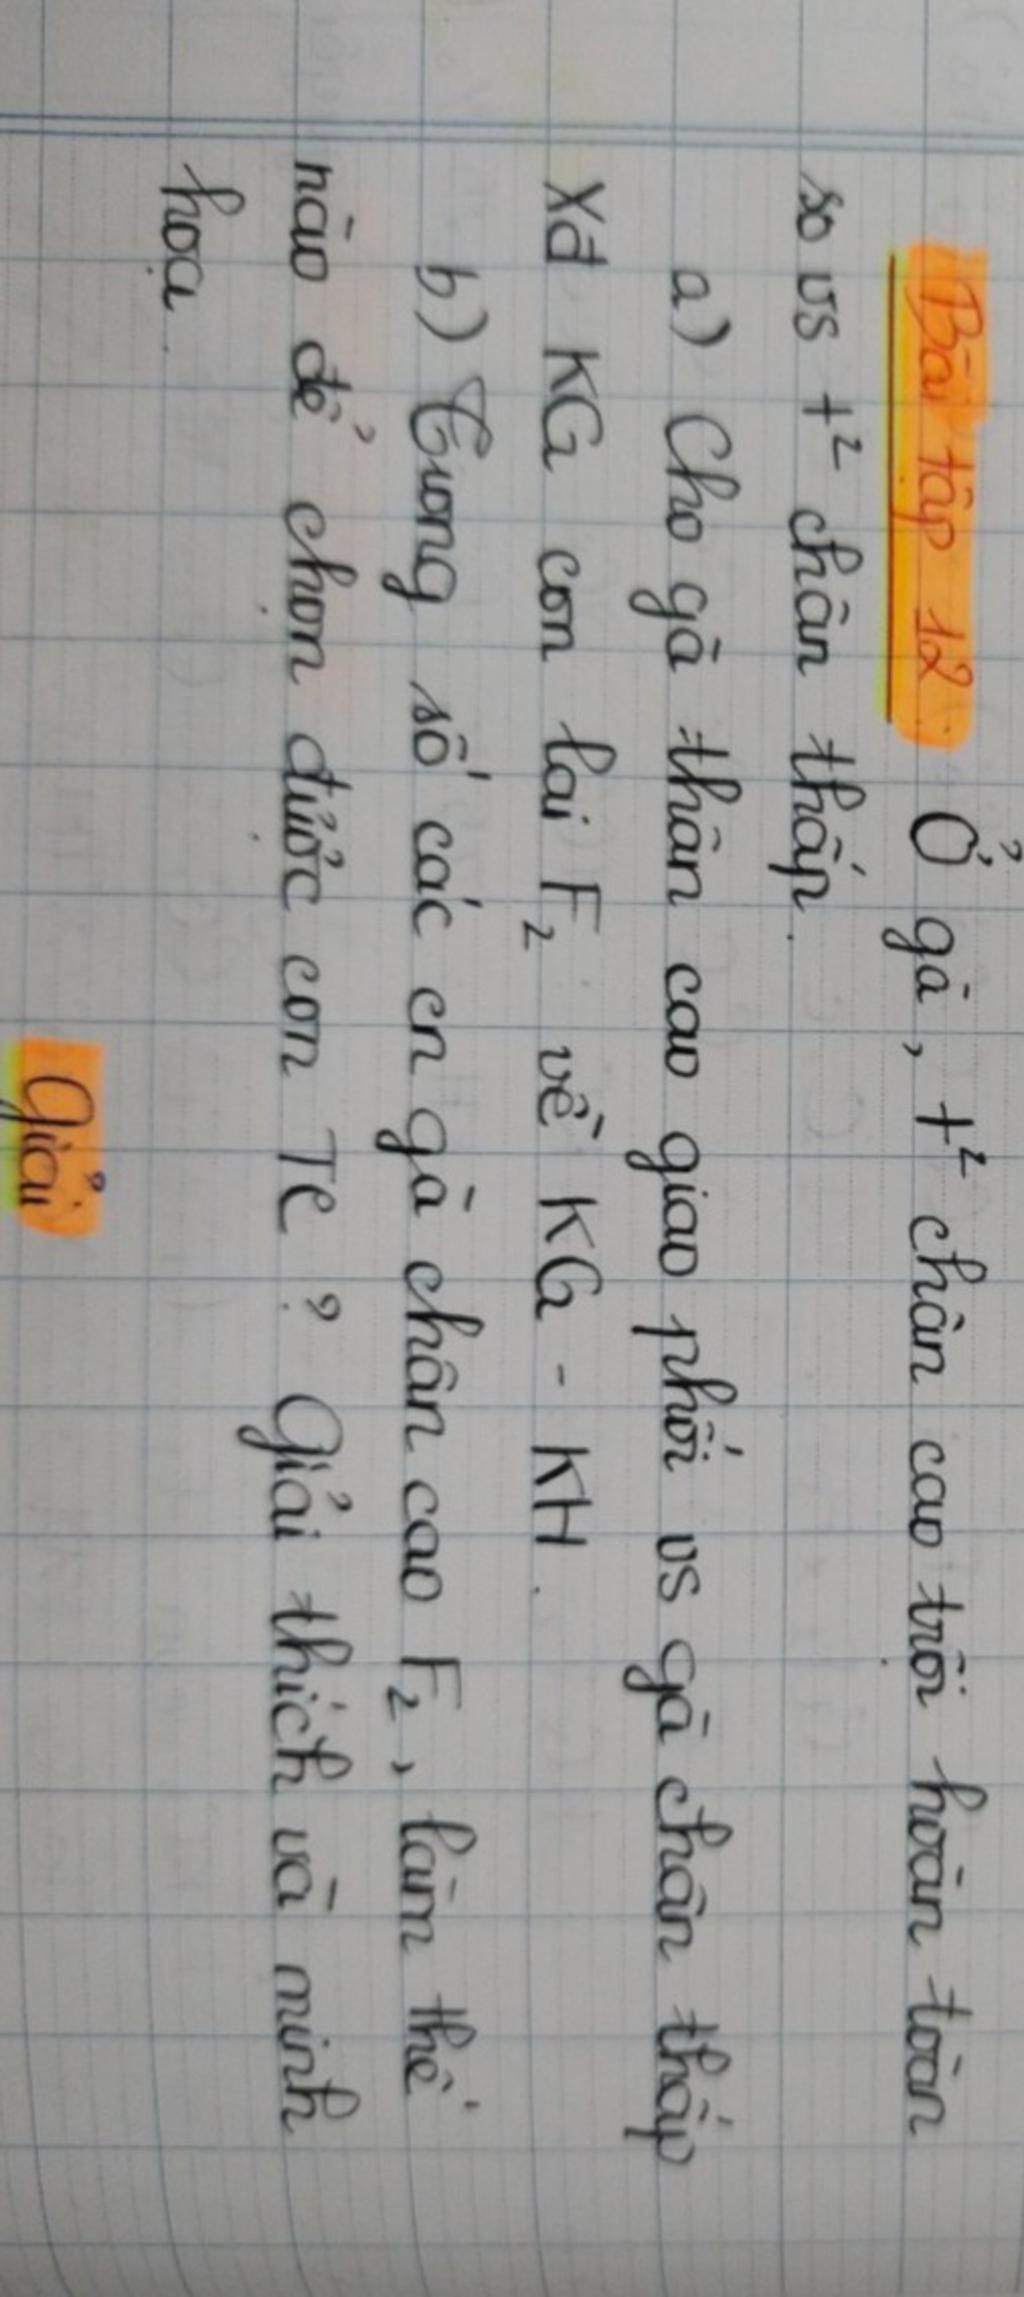 Bài tập 12. Ở gà, t² chân cao trội hoàn toàn
so vs t² chân thấp.
a) Cho gà thân cao giao phối vs gà chân thấp
Xđ KG con lai F₂ về KG - KH.
b) Trong số các cn gà chân cao F₂, làm thế
nào để chọn được con TC ? Giải thích và minh
họa.
Giải